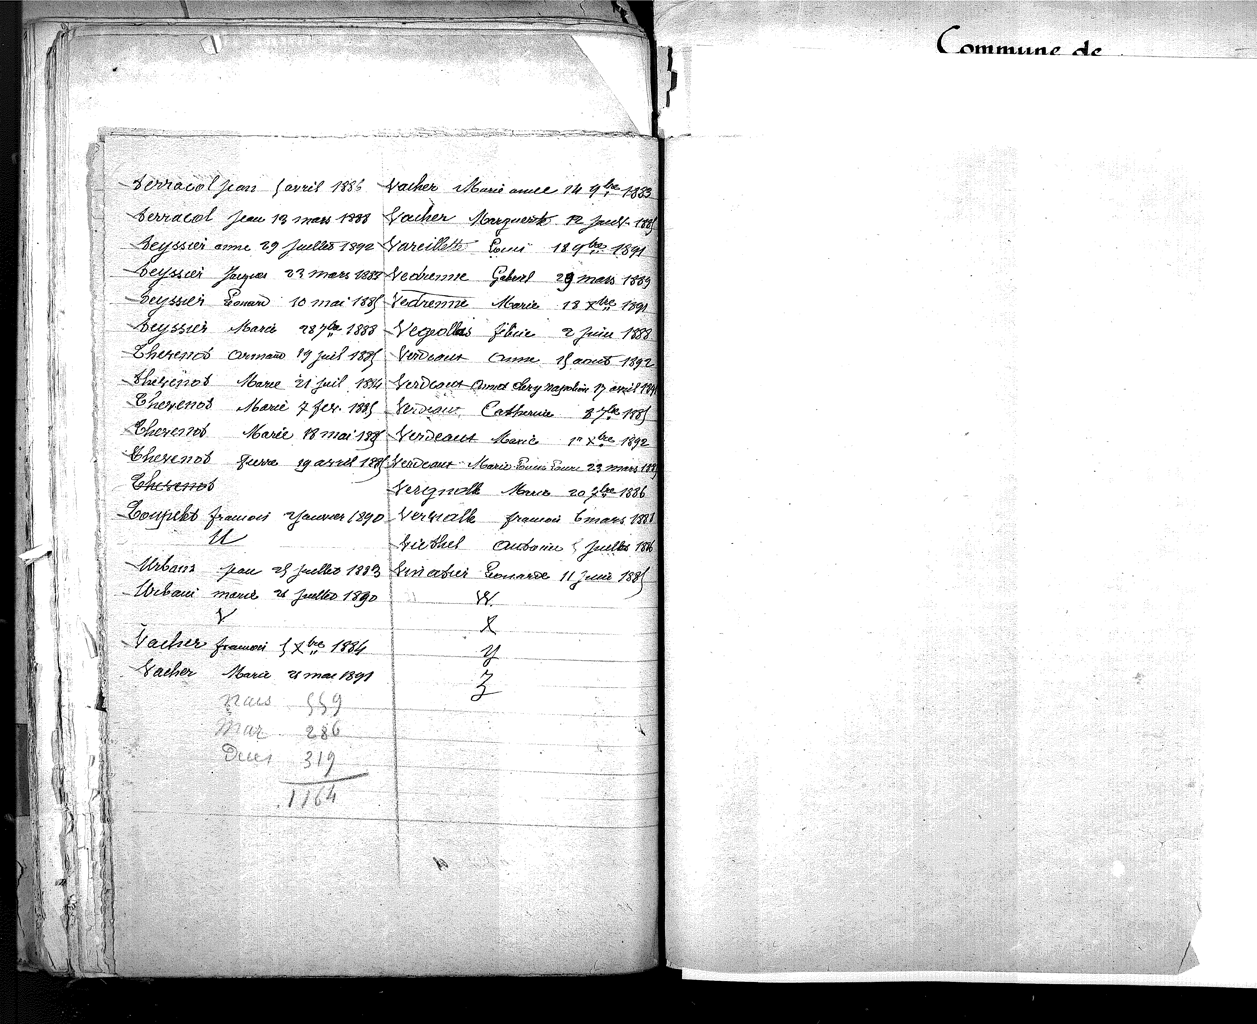 Commune de
Terracol Jean 5 avril 1886
Terracol Jean 13 mars 1888
Teyssier anne 29 Juillet 1892
Teyssier Jacques 23 mars 1888
Teyssier Léonard 10 mai 1885
Teyssier Marie 28 7bre 1888
Thevenot Armand 19 Juil 1885
Thevenot Marie 21 Juil 1884
Thevenot Marie 7 fev. 1885
Thevenot Marie 18 mai 188
Thevenot Pierre 19 avril 1885
Thevenot
Toupelet francois 2 Janvier 1890
U
Urbain Jean 25 Juillet 1883
Urbain marie 21 Juillet 1890
V
Vacher francois 5 Xbre 1884
Vacher Marie 21 mai 1891
Nais 559
Mar 286
Deces 319
1164
Vacher Marie anne 14 9bre 1883
Vacher Marguerite 12 Juil 1885
Vareillette Louis 18 9bre 1891
Vedrenne Gabriel 29 mars 1889
Vedrenne Marie 13 Xbre 1891
Vegeollas 2 Juin 1888
Verdeaut Anne 15 aout 1892
Verdeaut Napoléon 17 avril
Verdeaut Catherine 8 7bre 1885
Verdeaut Marie 1er Xbre 1892
Verdeaut Marie Louise 23 mars 188
Vergnolle Marie 20 7bre 1886
Vergnolle francois 6 mars 1888
Viethel Antoine 5 Juillet 1886
Vinatier Léonarde 11 Juin 1885
W.
X
Y
Z